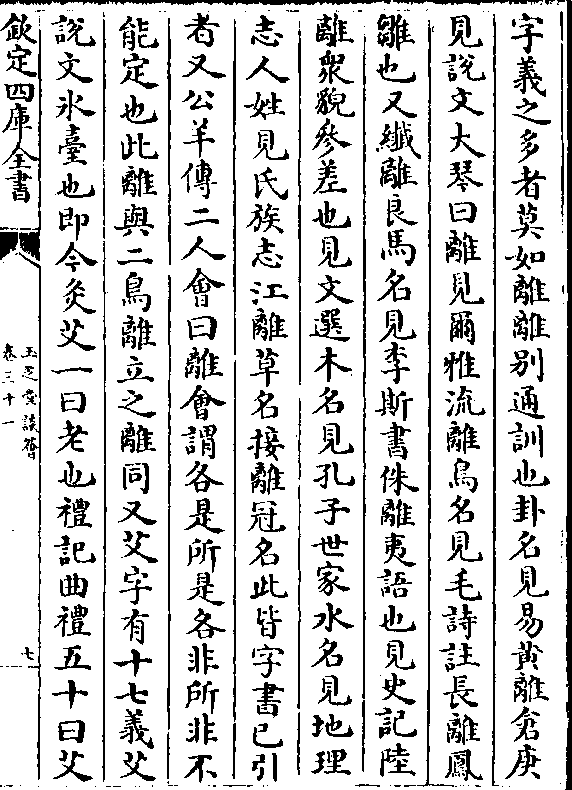 字義之多者莫如離離别通訓也卦名見易黄離倉庚
見說文大琴曰離見爾雅流離鳥名見毛詩註長離鳳
雛也又纎離良馬名見李斯書侏離夷語也見史記陸
離衆貌參差也見文選木名見孔子世家水名見地理
志人姓見氏族志江離草名接離冠名此皆字書已引
者又公羊傳二人會曰離會謂各是所是各非所非不
能定也此離與二鳥離立之離同又艾字有十七義艾
說文氷臺也即今灸艾一曰老也禮記曲禮五十曰艾
欽定四庫全書
玉芝堂談薈
卷三十一
七